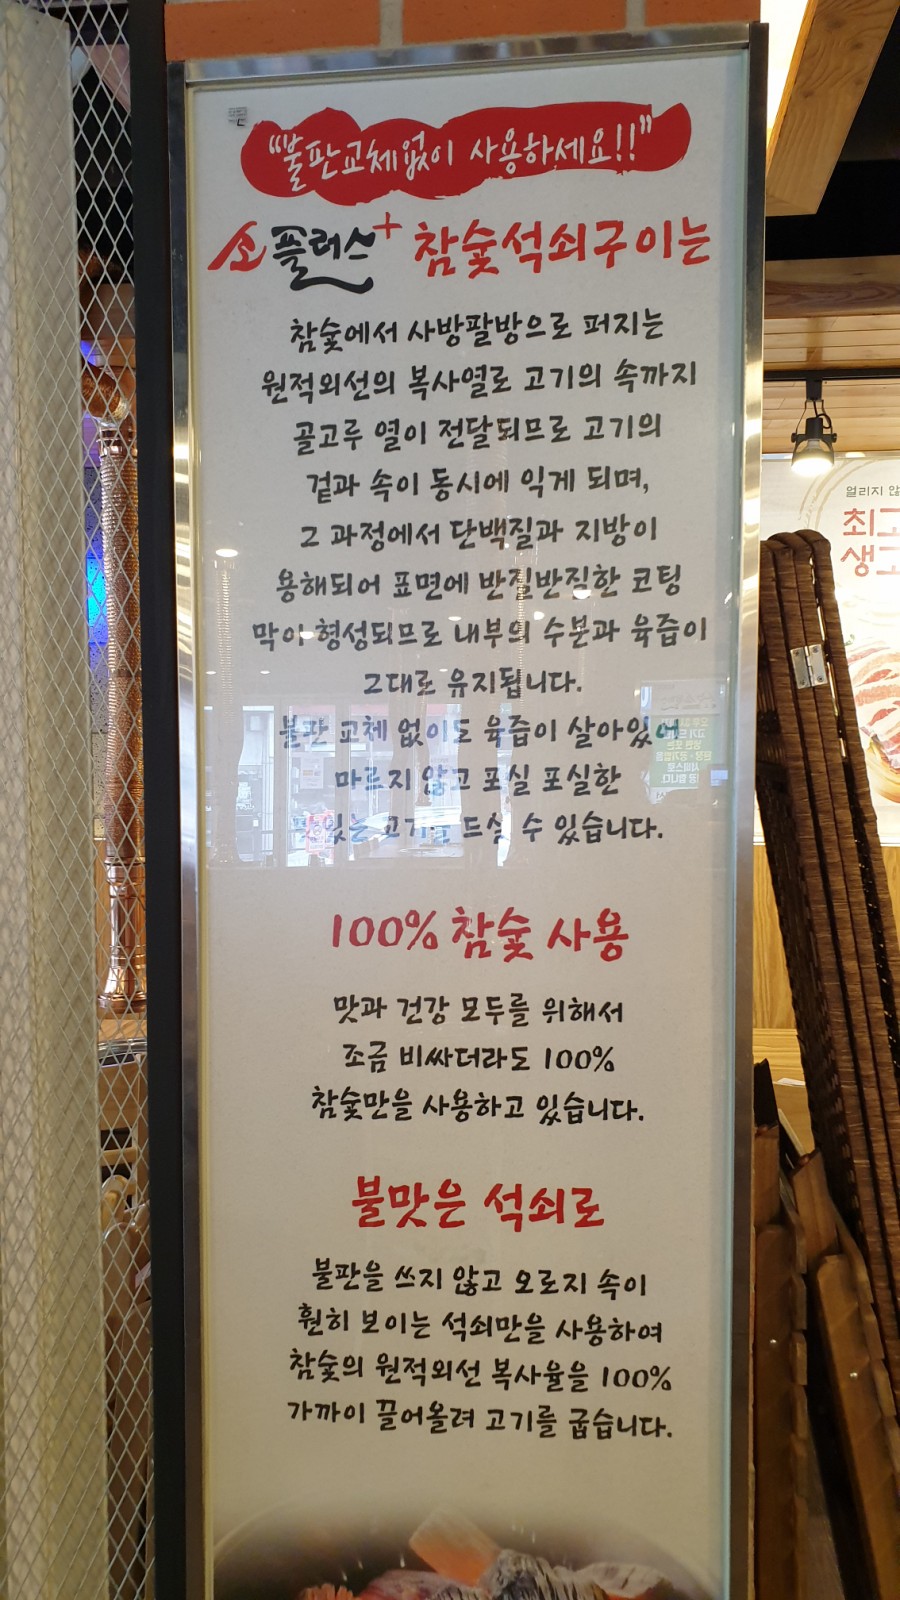 "불판교체없이 사용하세요!!"
소플러스+ 참숯석쇠구이는
참숯에서 사방팔방으로 퍼지는
원적외선의 복사열로 고기의 속까지
골고루 열이 전달되므로 고기의
겉과 속이 동시에 익게 되며,
그 과정에서 단백질과 지방이
용해되어 표면에 반질반직한 코팅
막이 형성되므로 내부의 수분과 육즙이
그대로 유지됩니다.
불판 교체 없이도 육즙이 살아있어
마르지 않고 포실 포실한
맛있는 고기를 드실 수 있습니다.
100% 참숯 사용
맛과 건강 모두를 위해서
조금 비싸더라도 100%
참숯만을 사용하고 있습니다.
불맛은 석쇠로
불판을 쓰지 않고 오로지 속이
훤히 보이는 석쇠만을 사용하여
참숯의 원적외선 복사율을 100%
가까이 끌어올려 고기를 굽습니다.
얼리지 않
최고
생고